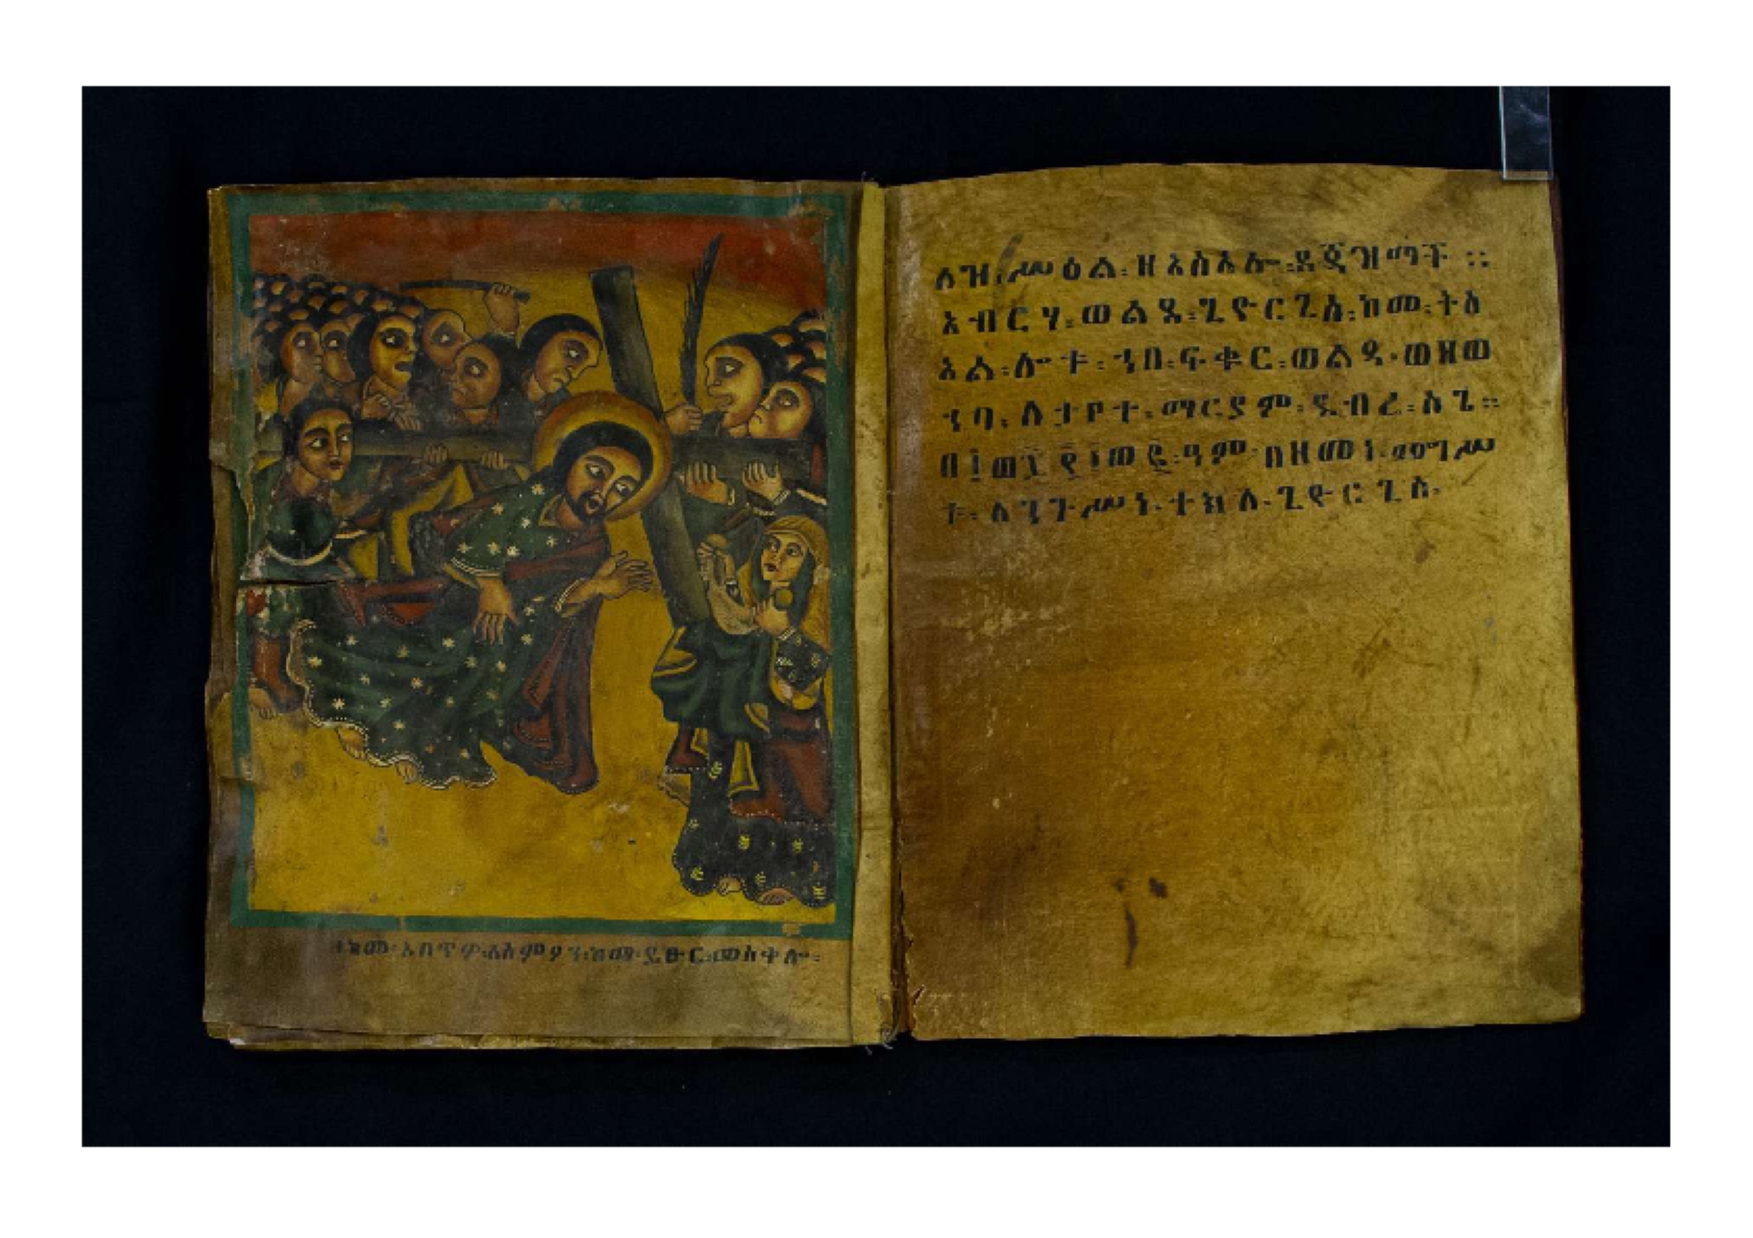 ዘከመ፡አበጥዎ፡ለስምዖን፡ከመ፡ይፁር፡መስቀሎ፡
ለዝ፡ሥዕል፡ዘአስአሎ፡ደጃዝማች ።
አብርሃ፡ወልደ፡ጊዮርጊስ፡ከመ፡ትስ
አል፡ሎቱ፡ኀበ፡ፍቁር፡ወልዳ፡ወዘወ
ለታቦተ፡ማርያም፡ደብረ፡
ዓም፡በዘመነ፡መንግሥ
ቱ፡ለንጉሥነ፡ተክለ፡ጊዮርጊስ፡